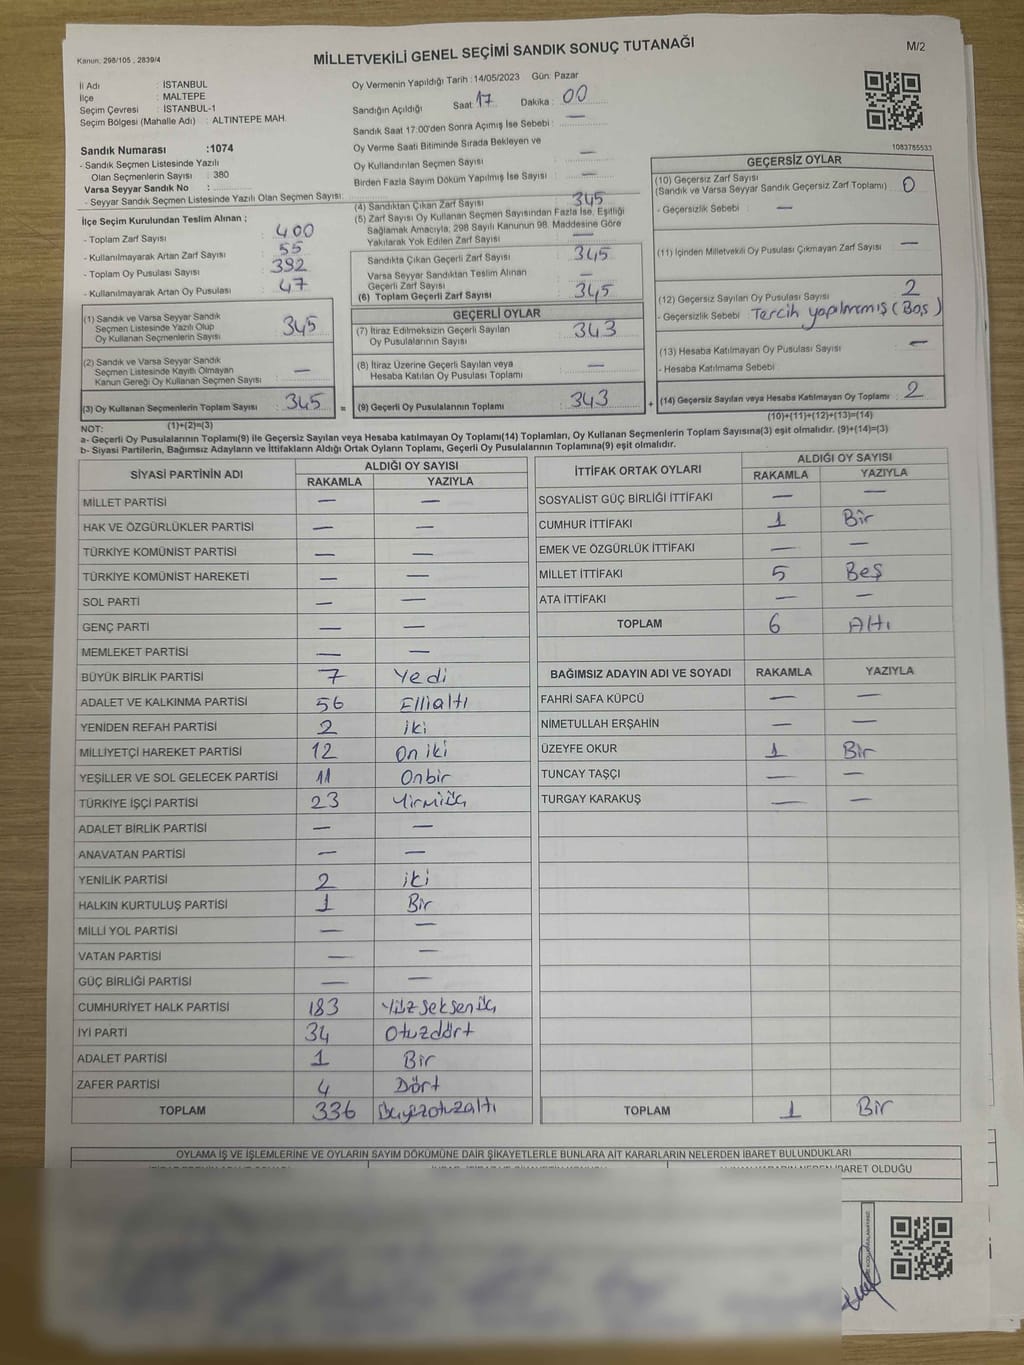 Kanun, 298/105 , 2839/4
MİLLETVEKİLİ GENEL SEÇİMİ SANDIK SONUÇ TUTANAĞI
M/2
İl Adı : İSTANBUL
İlçe : MALTEPE
Seçim Çevresi : İSTANBUL-1
Seçim Bölgesi (Mahalle Adı) : ALTINTEPE MAH.
Sandık Numarası :1074
- Sandık Seçmen Listesinde Yazılı
Olan Seçmenlerin Sayısı : 380
Varsa Seyyar Sandık No :
- Seyyar Sandık Seçmen Listesinde Yazılı Olan Seçmen Sayısı:
İlçe Seçim Kurulundan Teslim Alınan ;
- Toplam Zarf Sayısı : 400
- Kullanılmayarak Artan Zarf Sayısı : 55
- Toplam Oy Pusulası Sayısı : 392
- Kullanılmayarak Artan Oy Pusulası : 47
(1) Sandık ve Varsa Seyyar Sandık
Seçmen Listesinde Yazılı Olup
Oy Kullanan Seçmenlerin Sayısı : 345
(2) Sandık ve Varsa Seyyar Sandık
Seçmen Listesinde Kayıtlı Olmayan
Kanun Gereği Oy Kullanan Seçmen Sayısı : —
(3) Oy Kullanan Seçmenlerin Toplam Sayısı : 345
(1)+(2)=(3)
Oy Vermenin Yapıldığı Tarih : 14/05/2023 Gün: Pazar
Sandığın Açıldığı Saat : 17 Dakika : 00
Sandık Saat 17:00'den Sonra Açılmış İse Sebebi : —
Oy Verme Saati Bitiminde Sırada Bekleyen ve
Oy Kullandırılan Seçmen Sayısı : —
Birden Fazla Sayım Döküm Yapılmış İse Sayısı : —
(4) Sandıktan Çıkan Zarf Sayısı : 345
(5) Zarf Sayısı Oy Kullanan Seçmen Sayısından Fazla İse, Eşitliği
Sağlamak Amacıyla; 298 Sayılı Kanunun 98. Maddesine Göre
Yakılarak Yok Edilen Zarf Sayısı : —
Sandıkta Çıkan Geçerli Zarf Sayısı : 345
Varsa Seyyar Sandıktan Teslim Alınan
Geçerli Zarf Sayısı : —
(6) Toplam Geçerli Zarf Sayısı : 345
GEÇERLİ OYLAR
(7) İtiraz Edilmeksizin Geçerli Sayılan
Oy Pusulalarının Sayısı : 343
(8) İtiraz Üzerine Geçerli Sayılan veya
Hesaba Katılan Oy Pusulası Toplamı : —
= (9) Geçerli Oy Pusulalarının Toplamı : 343
1083785533
GEÇERSİZ OYLAR
(10) Geçersiz Zarf Sayısı
(Sandık ve Varsa Seyyar Sandık Geçersiz Zarf Toplamı) : 0
- Geçersizlik Sebebi : —
(11) İçinden Milletvekili Oy Pusulası Çıkmayan Zarf Sayısı : —
(12) Geçersiz Sayılan Oy Pusulası Sayısı : 2
- Geçersizlik Sebebi : Tercih yapılmamış (Boş)
(13) Hesaba Katılmayan Oy Pusulası Sayısı : —
- Hesaba Katılmama Sebebi :
+ (14) Geçersiz Sayılan veya Hesaba Katılmayan Oy Toplamı : 2
(10)+(11)+(12)+(13)=(14)
NOT:
a- Geçerli Oy Pusulalarının Toplamı(9) ile Geçersiz Sayılan veya Hesaba katılmayan Oy Toplamı(14) Toplamları, Oy Kullanan Seçmenlerin Toplam Sayısına(3) eşit olmalıdır. (9)+(14)=(3)
b- Siyasi Partilerin, Bağımsız Adayların ve İttifakların Aldığı Ortak Oyların Toplamı, Geçerli Oy Pusulalarının Toplamına(9) eşit olmalıdır.
SİYASİ PARTİNİN ADI ALDIĞI OY SAYISI
RAKAMLA YAZIYLA
MİLLET PARTİSİ — —
HAK VE ÖZGÜRLÜKLER PARTİSİ — —
TÜRKİYE KOMÜNİST PARTİSİ — —
TÜRKİYE KOMÜNİST HAREKETİ — —
SOL PARTİ — —
GENÇ PARTİ — —
MEMLEKET PARTİSİ — —
BÜYÜK BİRLİK PARTİSİ 7 Yedi
ADALET VE KALKINMA PARTİSİ 56 Ellialtı
YENİDEN REFAH PARTİSİ 2 iki
MİLLİYETÇİ HAREKET PARTİSİ 12 On iki
YEŞİLLER VE SOL GELECEK PARTİSİ 11 Onbir
TÜRKİYE İŞÇİ PARTİSİ 23 Yirmiüç
ADALET BİRLİK PARTİSİ — —
ANAVATAN PARTİSİ — —
YENİLİK PARTİSİ 2 iki
HALKIN KURTULUŞ PARTİSİ 1 Bir
MİLLİ YOL PARTİSİ — —
VATAN PARTİSİ — —
GÜÇ BİRLİĞİ PARTİSİ — —
CUMHURİYET HALK PARTİSİ 183 Yüzseksenüç
İYİ PARTİ 34 Otuzdört
ADALET PARTİSİ 1 Bir
ZAFER PARTİSİ 4 Dört
TOPLAM 336 Üçyüzotuzaltı
İTTİFAK ORTAK OYLARI ALDIĞI OY SAYISI
RAKAMLA YAZIYLA
SOSYALİST GÜÇ BİRLİĞİ İTTİFAKI — —
CUMHUR İTTİFAKI 1 Bir
EMEK VE ÖZGÜRLÜK İTTİFAKI — —
MİLLET İTTİFAKI 5 Beş
ATA İTTİFAKI — —
TOPLAM 6 Altı
BAĞIMSIZ ADAYIN ADI VE SOYADI RAKAMLA YAZIYLA
FAHRİ SAFA KÜPCÜ — —
NİMETULLAH ERŞAHİN — —
ÜZEYFE OKUR 1 Bir
TUNCAY TAŞÇI — —
TURGAY KARAKUŞ — —
TOPLAM 1 Bir
OYLAMA İŞ VE İŞLEMLERİNE VE OYLARIN SAYIM DÖKÜMÜNE DAİR ŞİKAYETLERLE BUNLARA AİT KARARLARIN NELERDEN İBARET BULUNDUKLARI
İBARET OLDUĞU